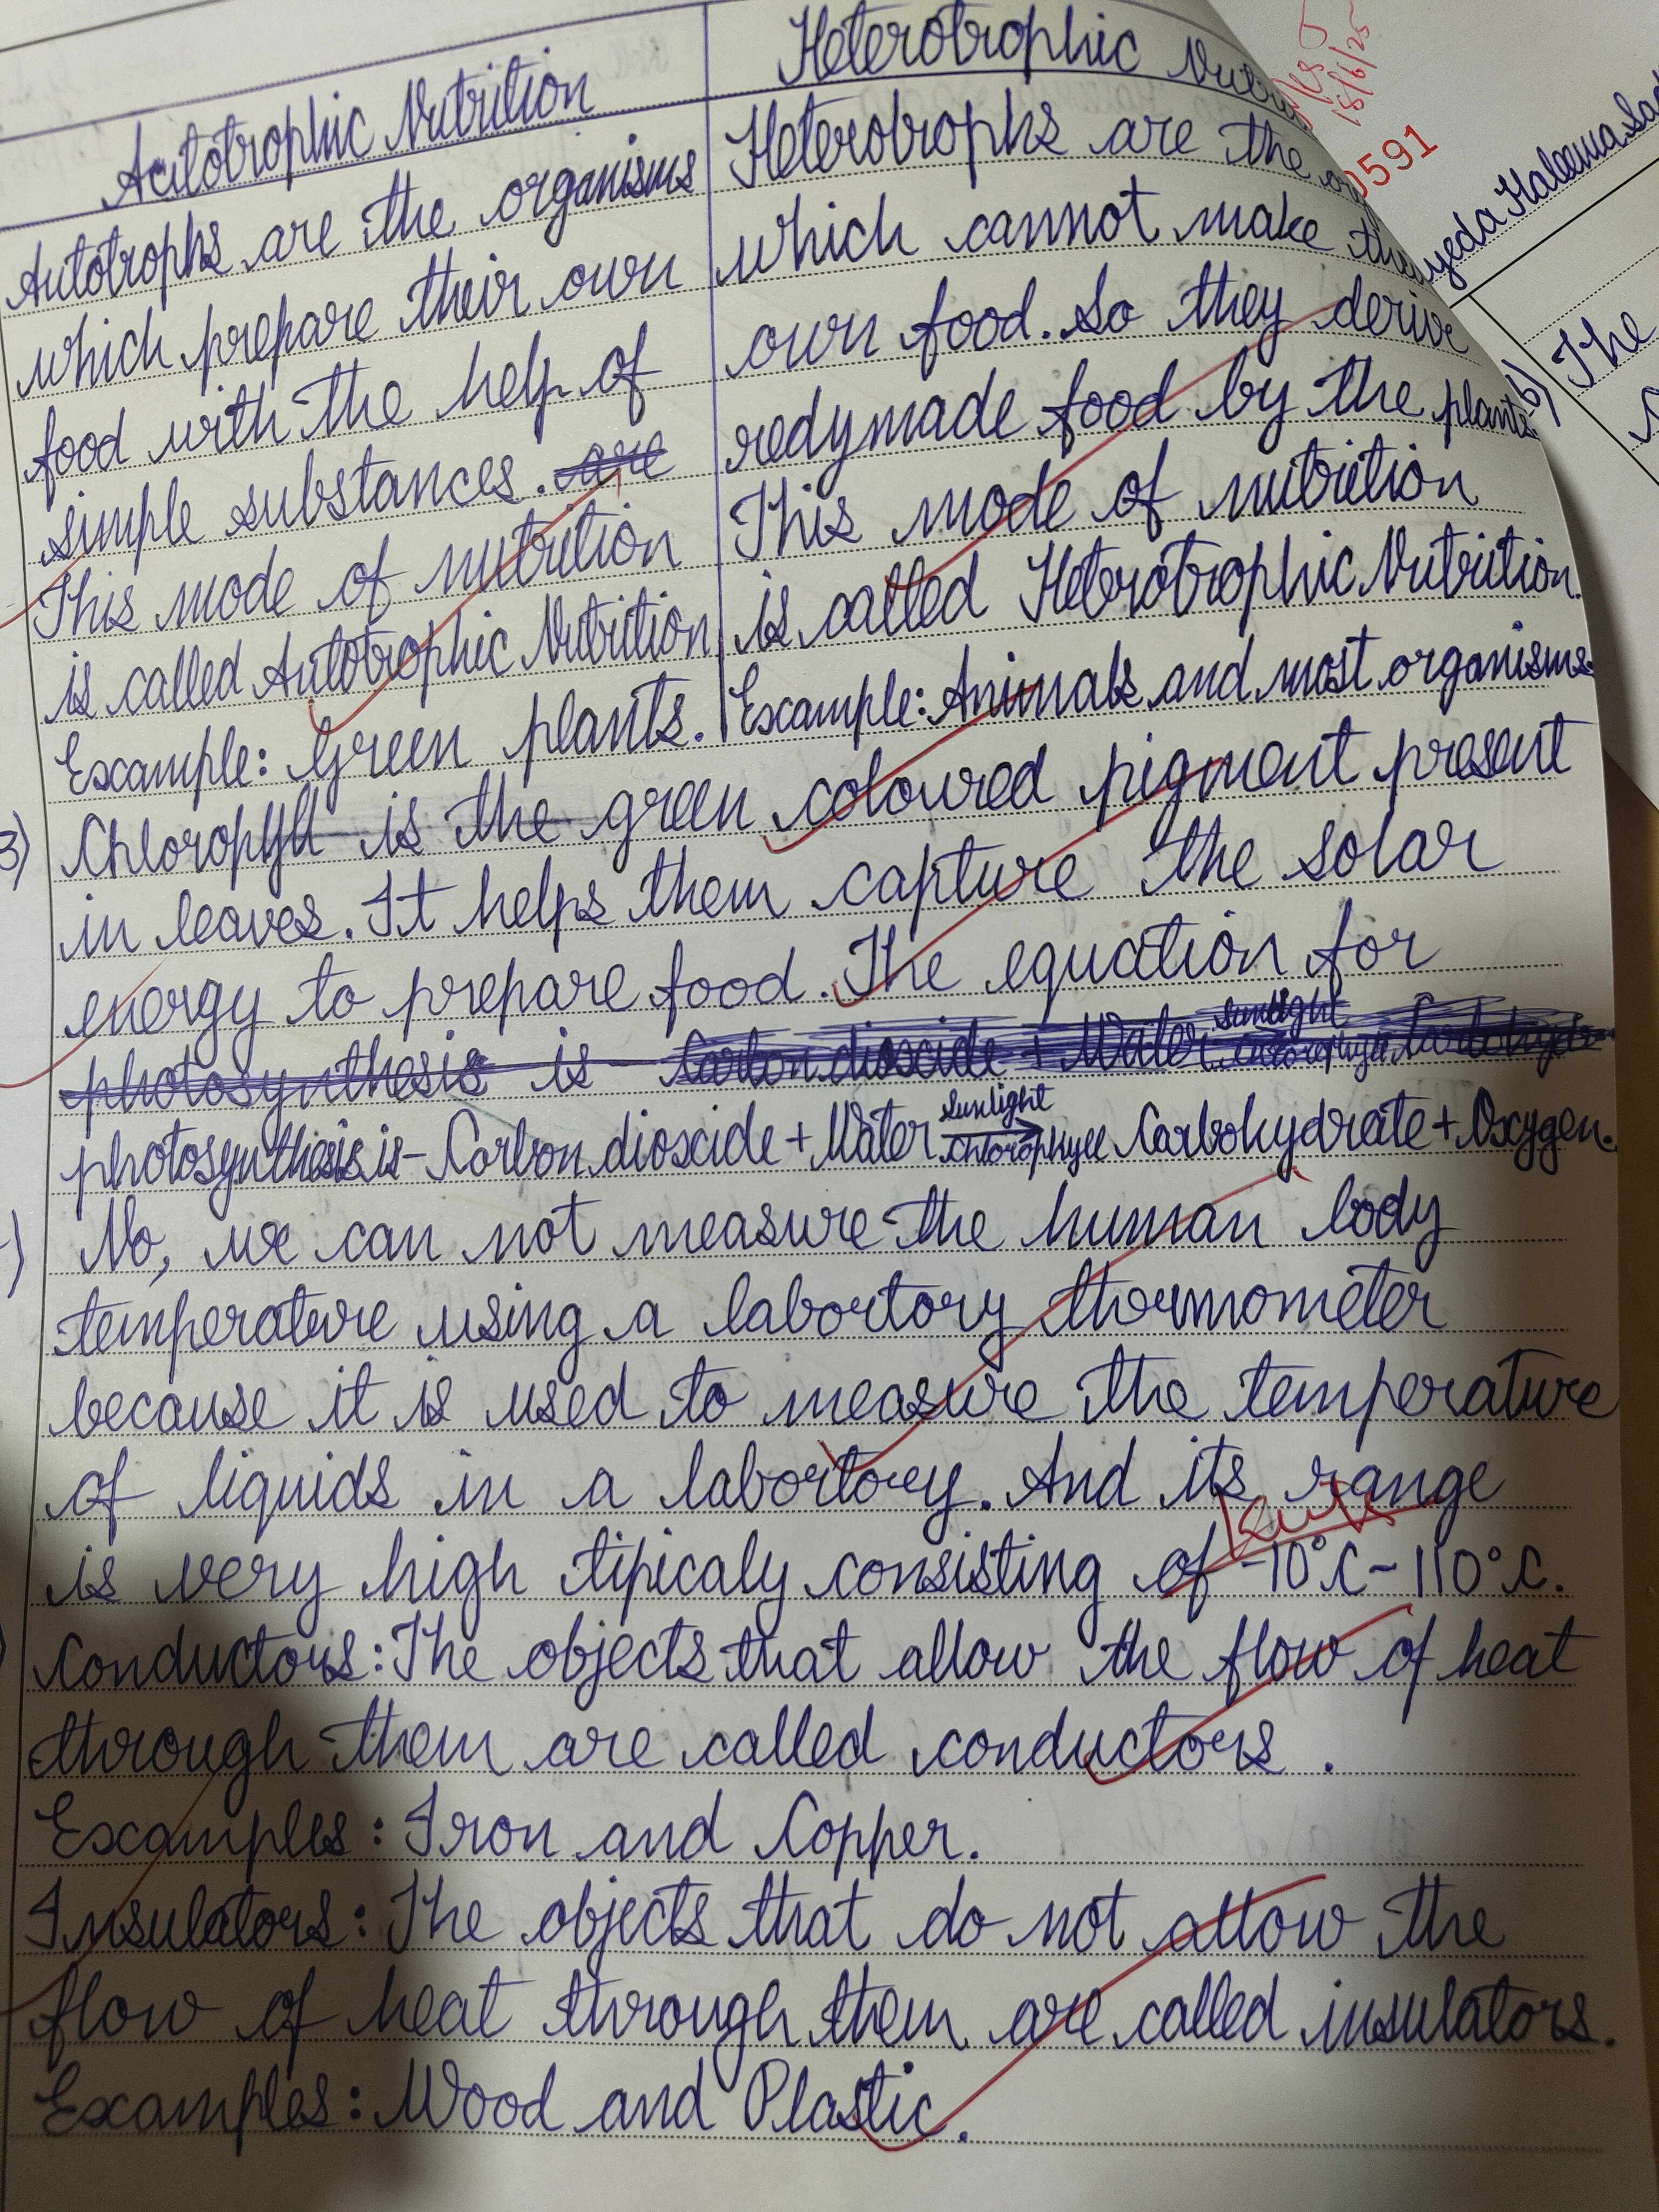 Autotrophic Nutrition
Autotrophs are the organisms
which prepare their own
food with the help of
simple substances. are
This mode of nutrition
is called Autotrophic Nutrition.
Example: Green plants.
Heterotrophic
Heterotrophs are the
which cannot make
own food. So they derive
redymade food by the plants.
This mode of nutrition
is called Heterotrophic Nutrition.
Example: Animals and most organisms.
3) Chloropyll is the green coloured pigment present
in leaves. It helps them capture the solar
energy to prepare food. The equation for
photosynthesis is - Carbon dioxide + Water sunlight
photosynthesis is - Carbon dioxide + Water sunlight → Chlorophyll Carbohydrate + Oxygen.
) No, we can not measure the human body
temperature using a labortory thermometer
because it is used to measure the temperature
of liquids in a labortory. And its range
is very high tipicaly consisting of -10°C - 110°C.
Conductors: The objects that allow the flow of heat
through them are called conductors.
Examples: Iron and Copper.
Insulators: The objects that do not allow the
flow of heat through them are called insulators.
Examples: Wood and Plastic.
18/6/25
0591
yeda Haleema Sad
b) The